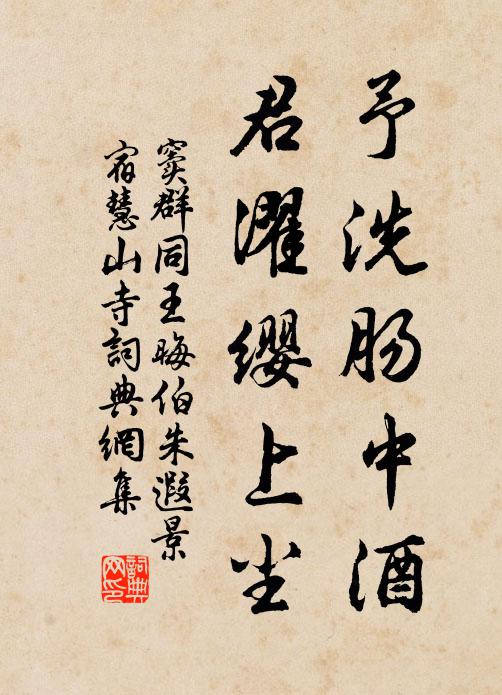 予洗肠中酒
君濯缨上尘
窦群同王晦伯朱遐景
宿慧山寺詞典網集
詞典网印